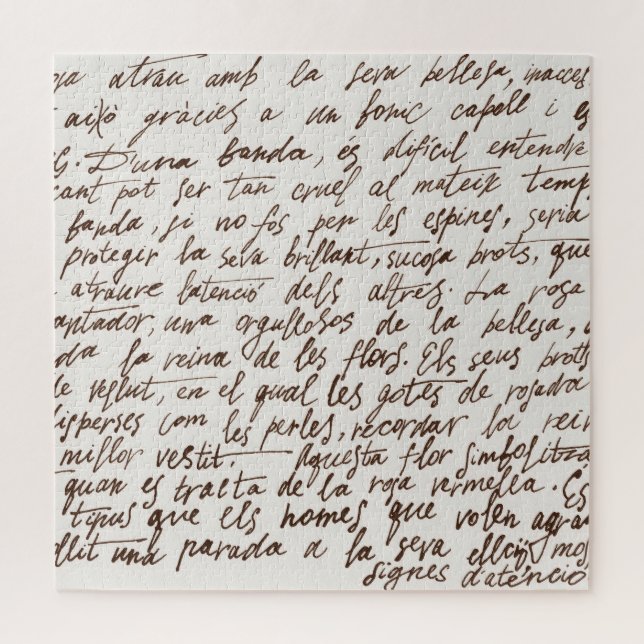 atrau amb la seva bellesa, inacces
això gràcies a un fonic capell i es
G. D'una banda, és difícil entendre
cant pot ser tan cruel al mateix temp
banda, si no fos per les espines, seria
protegir la seva brillant, sucosa brots, que
atraure latenció dels altres. La rosa
antador, una orgullosos de la bellesa,
da la reina de les flors. Els seus brots
de vellut, en el qual les gotes de rosada
isperses com les perles, recordar la rein
millor vestit. Aquesta flor simbolitza
quan es tracta de la roja vermella. És
tipus que els homes que volen agra
llit una parada a la seva mos
signes d'atenció